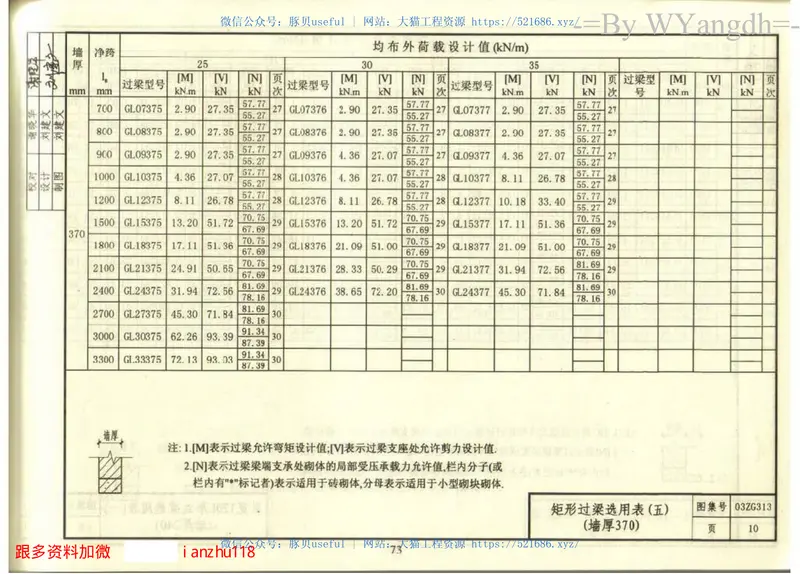 微信公众号：豚贝useful | 网站：大猫工程资源 https://521686.xyz/
-=By WYangdh=-
墙厚 mm 净跨 l mm 均布外荷载设计值(kN/m)
25 30 35
过梁型号 [M] kN.m [V] kN [N] kN 页次 过梁型号 [M] kN.m [V] kN [N] kN 页次 过梁型号 [M] kN.m [V] kN [N] kN 页次 过梁型号 [M] kN.m [V] kN [N] kN 页次
370
700 GL07375 2.90 27.35 57.77 55.27 27 GL07376 2.90 27.35 57.77 55.27 27 GL07377 2.90 27.35 57.77 55.27 27
800 GL08375 2.90 27.35 57.77 55.27 27 GL08376 2.90 27.35 57.77 55.27 27 GL08377 2.90 27.35 57.77 55.27 27
900 GL09375 2.90 27.35 57.77 55.27 27 GL09376 4.36 27.07 57.77 55.27 27 GL09377 4.36 27.07 57.77 55.27 27
1000 GL10375 4.36 27.07 57.77 55.27 28 GL10376 4.36 27.07 57.77 55.27 28 GL10377 8.11 26.78 57.77 55.27 28
1200 GL12375 8.11 26.78 57.77 55.27 28 GL12376 8.11 26.78 57.77 55.27 28 GL12377 10.18 33.40 57.77 55.27 28
1500 GL15375 13.20 51.72 70.75 67.69 29 GL15376 13.20 51.72 70.75 67.69 29 GL15377 17.11 51.36 70.75 67.69 29
1800 GL18375 17.11 51.36 70.75 67.69 29 GL18376 21.09 51.00 70.75 67.69 29 GL18377 21.09 51.00 70.75 67.69 29
2100 GL21375 24.91 50.65 70.75 67.69 29 GL21376 28.33 50.29 70.75 67.69 29 GL21377 31.94 72.56 81.69 78.16 29
2400 GL24375 31.94 72.56 81.69 78.16 29 GL24376 38.65 72.20 81.69 78.16 30 GL24377 45.30 71.84 81.69 78.16 30
2700 GL27375 45.30 71.84 81.69 78.16 30
3000 GL30375 62.26 93.39 91.34 87.39 30
3300 GL33375 72.13 93.03 91.34 87.39 30
校对
设计 刘建文
制图 刘建文
墙厚
注: 1.[M]表示过梁允许弯矩设计值;[V]表示过梁支座处允许剪力设计值.
2.[N]表示过梁梁端支承处砌体的局部受压承载力允许值,栏内分子(或
栏内有"*"标记者)表示适用于砖砌体,分母表示适用于小型砌块砌体.
矩形过梁选用表(五)
(墙厚370)
图集号 03ZG313
页 10
73
微信公众号：豚贝useful | 网站：大猫工程资源 https://521686.xyz/
跟多资料加微 ianzhu118